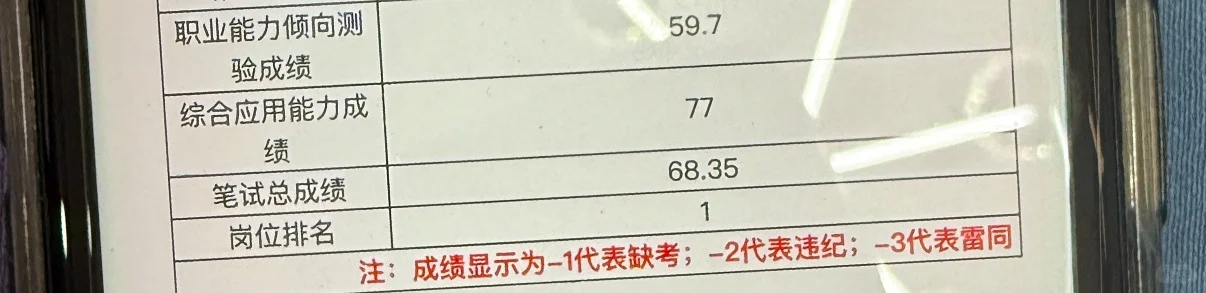 职业能力倾向测
验成绩
59.7
综合应用能力成
绩
77
笔试总成绩
68.35
岗位排名
1
注：成绩显示为-1代表缺考；-2代表违纪；-3代表雷同